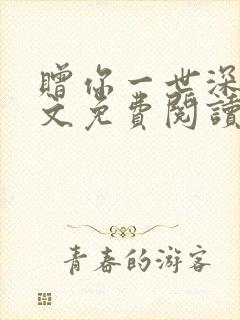 赠你一世深
文免費閱讀
青春的游客